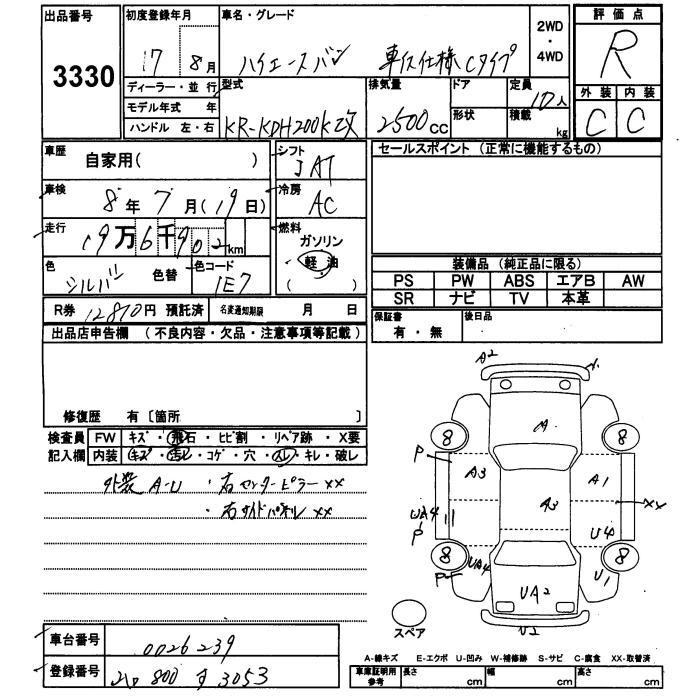 出品番号
3330
初度登録年月
17 8月
車名・グレード
ハイエースバン 車いす仕様Cタイプ
2WD
・
4WD
評価点
R
ディーラー・並行
モデル年式 年
ハンドル 左・右
型式
KR-KDH200K改
排気量
2500cc
ドア
形状
定員
10人
積載
kg
外装 内装
C C
車歴
自家用( )
シフト
AT
セールスポイント (正常に機能するもの)
車検
8年7月(19日)
冷房
AC
走行
19万6千902km
燃料
ガソリン
軽油
( )
色
シルバー 色替
色コード
1E7
装備品 (純正品に限る)
PS PW ABS エアB AW
SR ナビ TV 本革
R券 12810円 預託済
名変通知期限 月 日
保証書
有・無
後日品
出品店申告欄 (不良内容・欠品・注意事項等記載)
修復歴 有〔箇所 〕
検査員
記入欄
FW キズ・飛石・ヒビ割・リペア跡・X要
内装 キズ・汚レ・コゲ・穴・スレ・キレ・破レ
外装 A-U ・右センターピラーxx
・右サイドパネルxx
A2
A
8 8
P
A3 A1
A3
xx
UA4
P
U4
8 8
P
UA4 U1
UA2
U2
スペア
車台番号
0026239
登録番号
800 す 3053
A-線キズ E-エクボ U-凹み W-補修跡 S-サビ C-腐食 XX-取替済
車庫証明用
参考
長さ cm 幅 cm 高さ cm